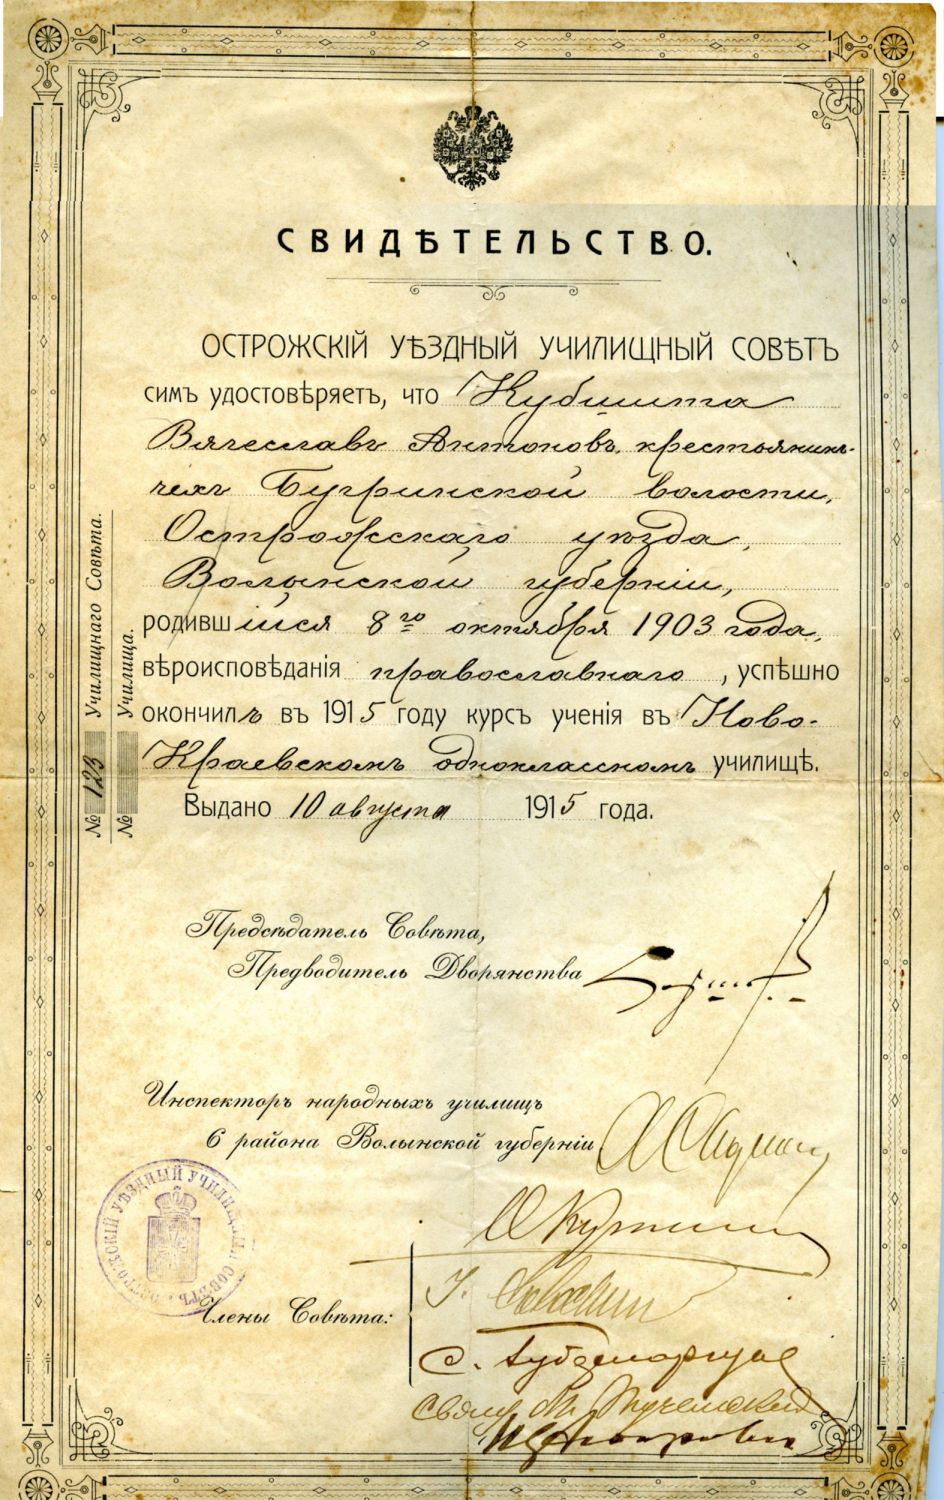 СВИДѢТЕЛЬСТВО.
ОСТРОЖСКІЙ УѢЗДНЫЙ УЧИЛИЩНЫЙ СОВѢТЪ
симъ удостовѣряетъ, что Кубишта
Вячеславъ Антоновъ, крестьянинъ-
чехъ Бугринской волости,
Острожскаго уѣзда,
Волынской губерніи,
родившійся 8го октября 1903 года,
вѣроисповѣданія православнаго, успѣшно
окончилъ въ 1915 году курсъ ученія въ Ново-
Краевскомъ одноклассномъ училищѣ.
Выдано 10 августа 1915 года.
№ 123 Училищнаго Совѣта.
№ Училища.
Предсѣдатель Совѣта,
Предводитель Дворянства
Инспекторъ народныхъ училищъ
6 района Волынской губерніи
ОСТРОЖСКІЙ УѢЗДНЫЙ УЧИЛИЩНЫЙ СОВѢТЪ
Члены Совѣта: